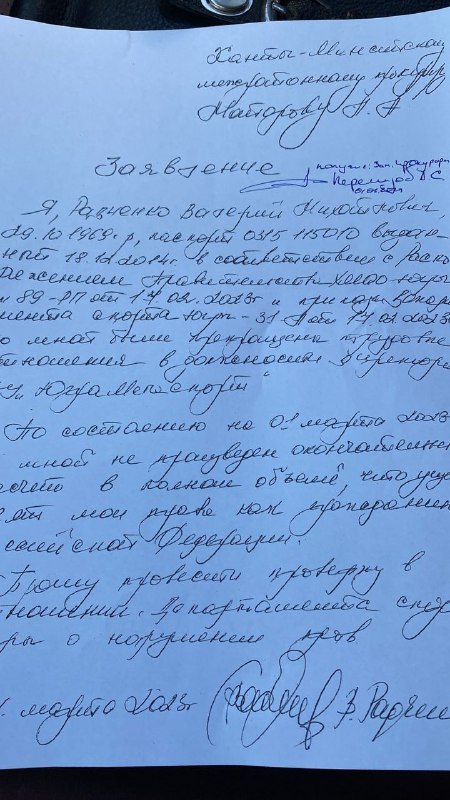 Ханты-Мансийскому
межрайонному прокурору
Майорову А. А
Заявление
получил: Зам. прокурора
Я, Радченко Валерий
29.10.1969 г.р, паспорт выдан-
ный 18.12.2014г. в соответствии с Распо
ряжением Правительства ХМАО-Югры
89-рп от 17.02.2023г и приказ Депар
тамента спорта Югры - 31 от 17.02.2023г
со мной были прекращены трудовые
тношения в должности Директора
"ЮграМегаспорт"
По состоянию на 01 марта 2023
мной не произведен окончательный
асчёт в полном объеме, что
мои права как гражданина
ссийской Федерации.
Прошу провести проверку в
тношении Департамента спор
ры о нарушении прав
марта 2023г В. Радчен